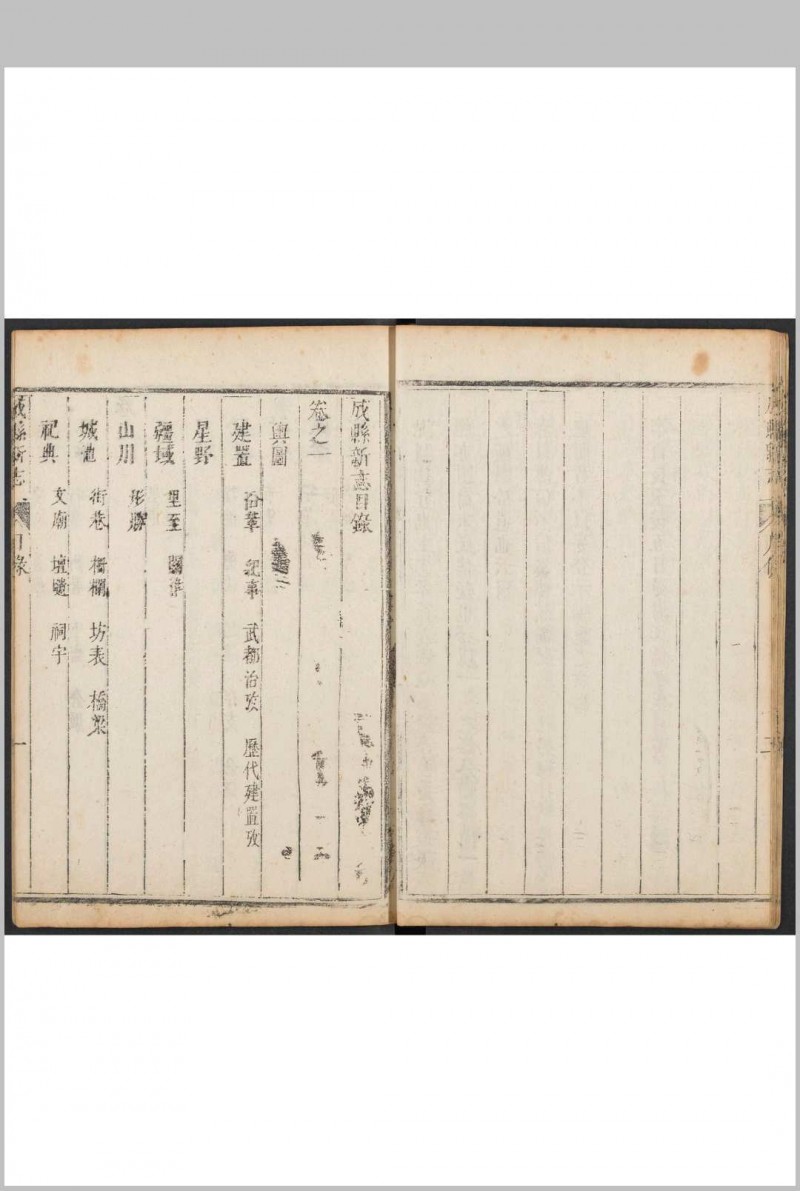 成縣新志目錄
卷之一
輿圖
建置 沿革 紀事 武都治攷 歷代建置攷
星野
疆域 里至 關津
山川 形勝
城池 街巷 柵欄 坊表 橋梁
祀典 文廟 壇壝 祠宇
成縣新志 目錄 一